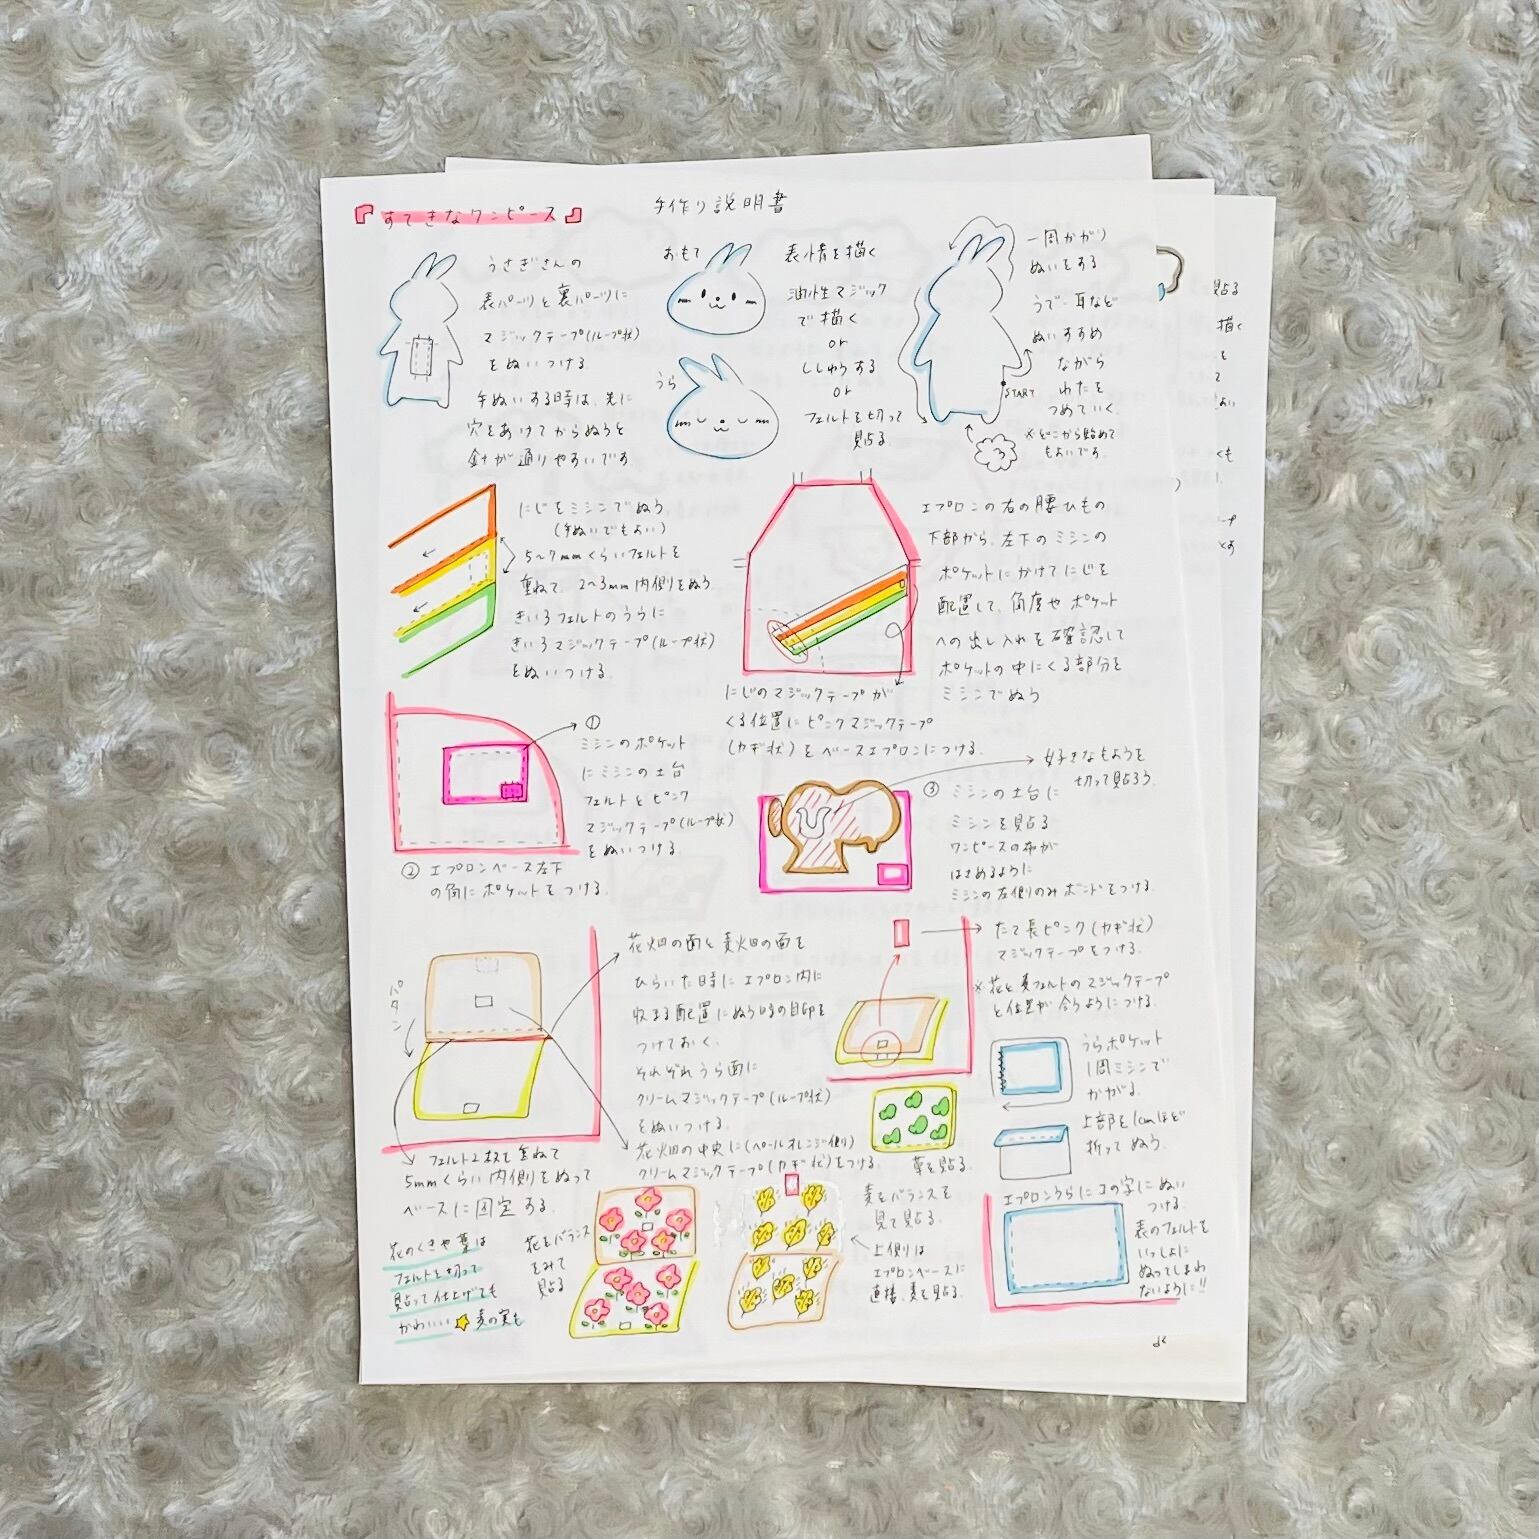 『すてきなワンピース』
手作り説明書
うさぎさんの
表パーツと裏パーツに
マジックテープ(ループ状)
をぬいつける
手ぬいする時は、先に
穴をあけてからぬうと
針が通りやすいです。
おもて
うら
表情を描く
油性マジック
で描く
or
ししゅうする
or
フェルトを切って
貼る
一周かがり
ぬいをする
うで・耳など
ぬいすすめ
ながら
わたを
つめていく。
START
※どこから始めて
もよいです。
にじをミシンでぬう
(手ぬいでもよい)
5~7mmくらいフェルトを
重ねて、2~3mm内側をぬう。
きいろフェルトのうらに
きいろマジックテープ(ループ状)
をぬいつける。
エプロンの右の腰ひもの
下部から、左下のミシンの
ポケットにかけてにじを
配置して、角度やポケット
への出し入れを確認して
ポケットの中にくる部分を
ミシンでぬう
にじのマジックテープが
くる位置にピンクマジックテープ
(カギ状)をベースエプロンにつける。
①
ミシンのポケット
にミシンの土台
フェルトとピンク
マジックテープ(ループ状)
をぬいつける。
② エプロンベース左下
の角にポケットをつける。
好きなもようを
切って貼ろう。
③ ミシンの土台に
ミシンを貼る
ワンピースの布が
はさめるように
ミシンの左側のみボンドをつける。
パタン
花畑の面と麦畑の面を
ひらいた時にエプロン内に
収まる配置にぬう時の目印を
つけておく。
それぞれうら面に
クリームマジックテープ(ループ状)
をぬいつける。
花畑の中央に(ペールオレンジ側)
クリームマジックテープ(カギ状)をつける。
フェルト2枚を重ねて
5mmくらい内側をぬって
ベースに固定する。
たて長ピンク(カギ状)
マジックテープをつける。
※花と麦フェルトのマジックテープ
と位置が合うようにつける。
うらポケット
1周ミシンで
かがる。
上部を1cmほど
折ってぬう。
草を貼る。
花のくきや葉は
フェルトを切って
貼って仕上げても
かわいい 麦の実も
花をバランス
をみて
貼る
麦をバランスを
見て貼る。
上側は
エプロンベースに
直接、麦を貼る。
エプロンうらにコの字にぬい
つける。
表のフェルトを
いっしょに
ぬってしまわ
ないように!!
貼る
描く
を